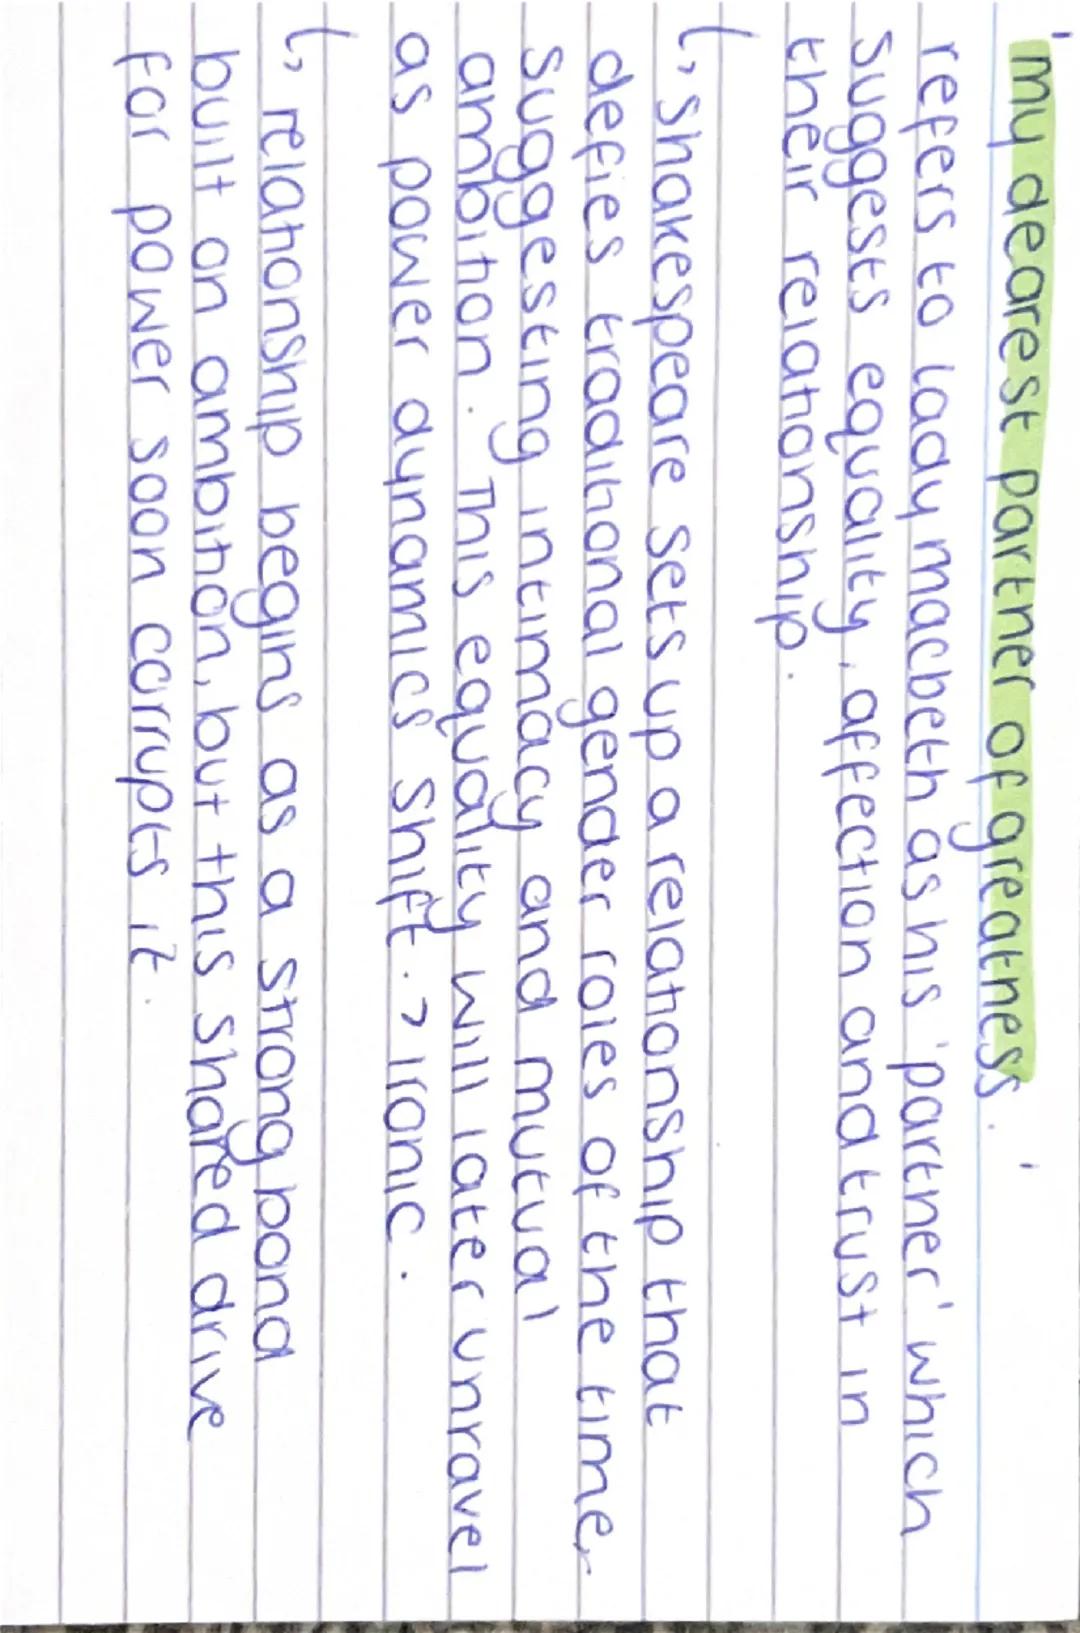 'my dearest partner of greatness.'
refers to lady macbeth as his 'partner' which
suggests equality, affection and trust in
their relationship.
↳ Shakespeare sets up a relationship that
defies traditional gender roles of the time,
suggesting intimacy and mutual
ambition. This equality will later unravel
as power dynamics shift. > Ironic.
↳ relationship begins as a strong bond
built on ambition, but this shared drive
for power soon corrupts it.